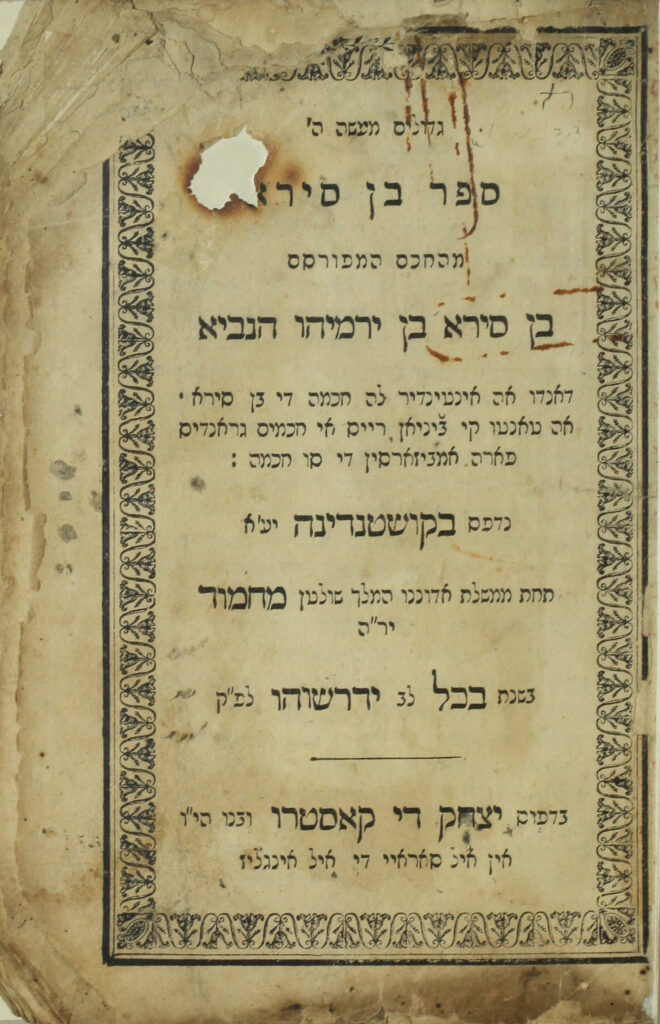 גדולים מעשה ה'
ספר בן סירא
מהחכם המפורסם
בן סירא בן ירמיהו הנביא
דאנדו אה אינטינדיר לה חכמה די בן סירא י
אה טאנטו קי ב̆יניאן רייס אי חכמים גראנדיס
פארה אמביזארסין די סו חכמה :
נדפס בקושטנדינה יע'א
תחת ממשלת אדוננו המלך שולטן מחמוד
יר"ה
בשנת בכל לב ידרשוהו לפ"ק
בדפוס יצחק די קאסטרו ובנו הי"ו
אין איל סאראיי די איל אינגליז